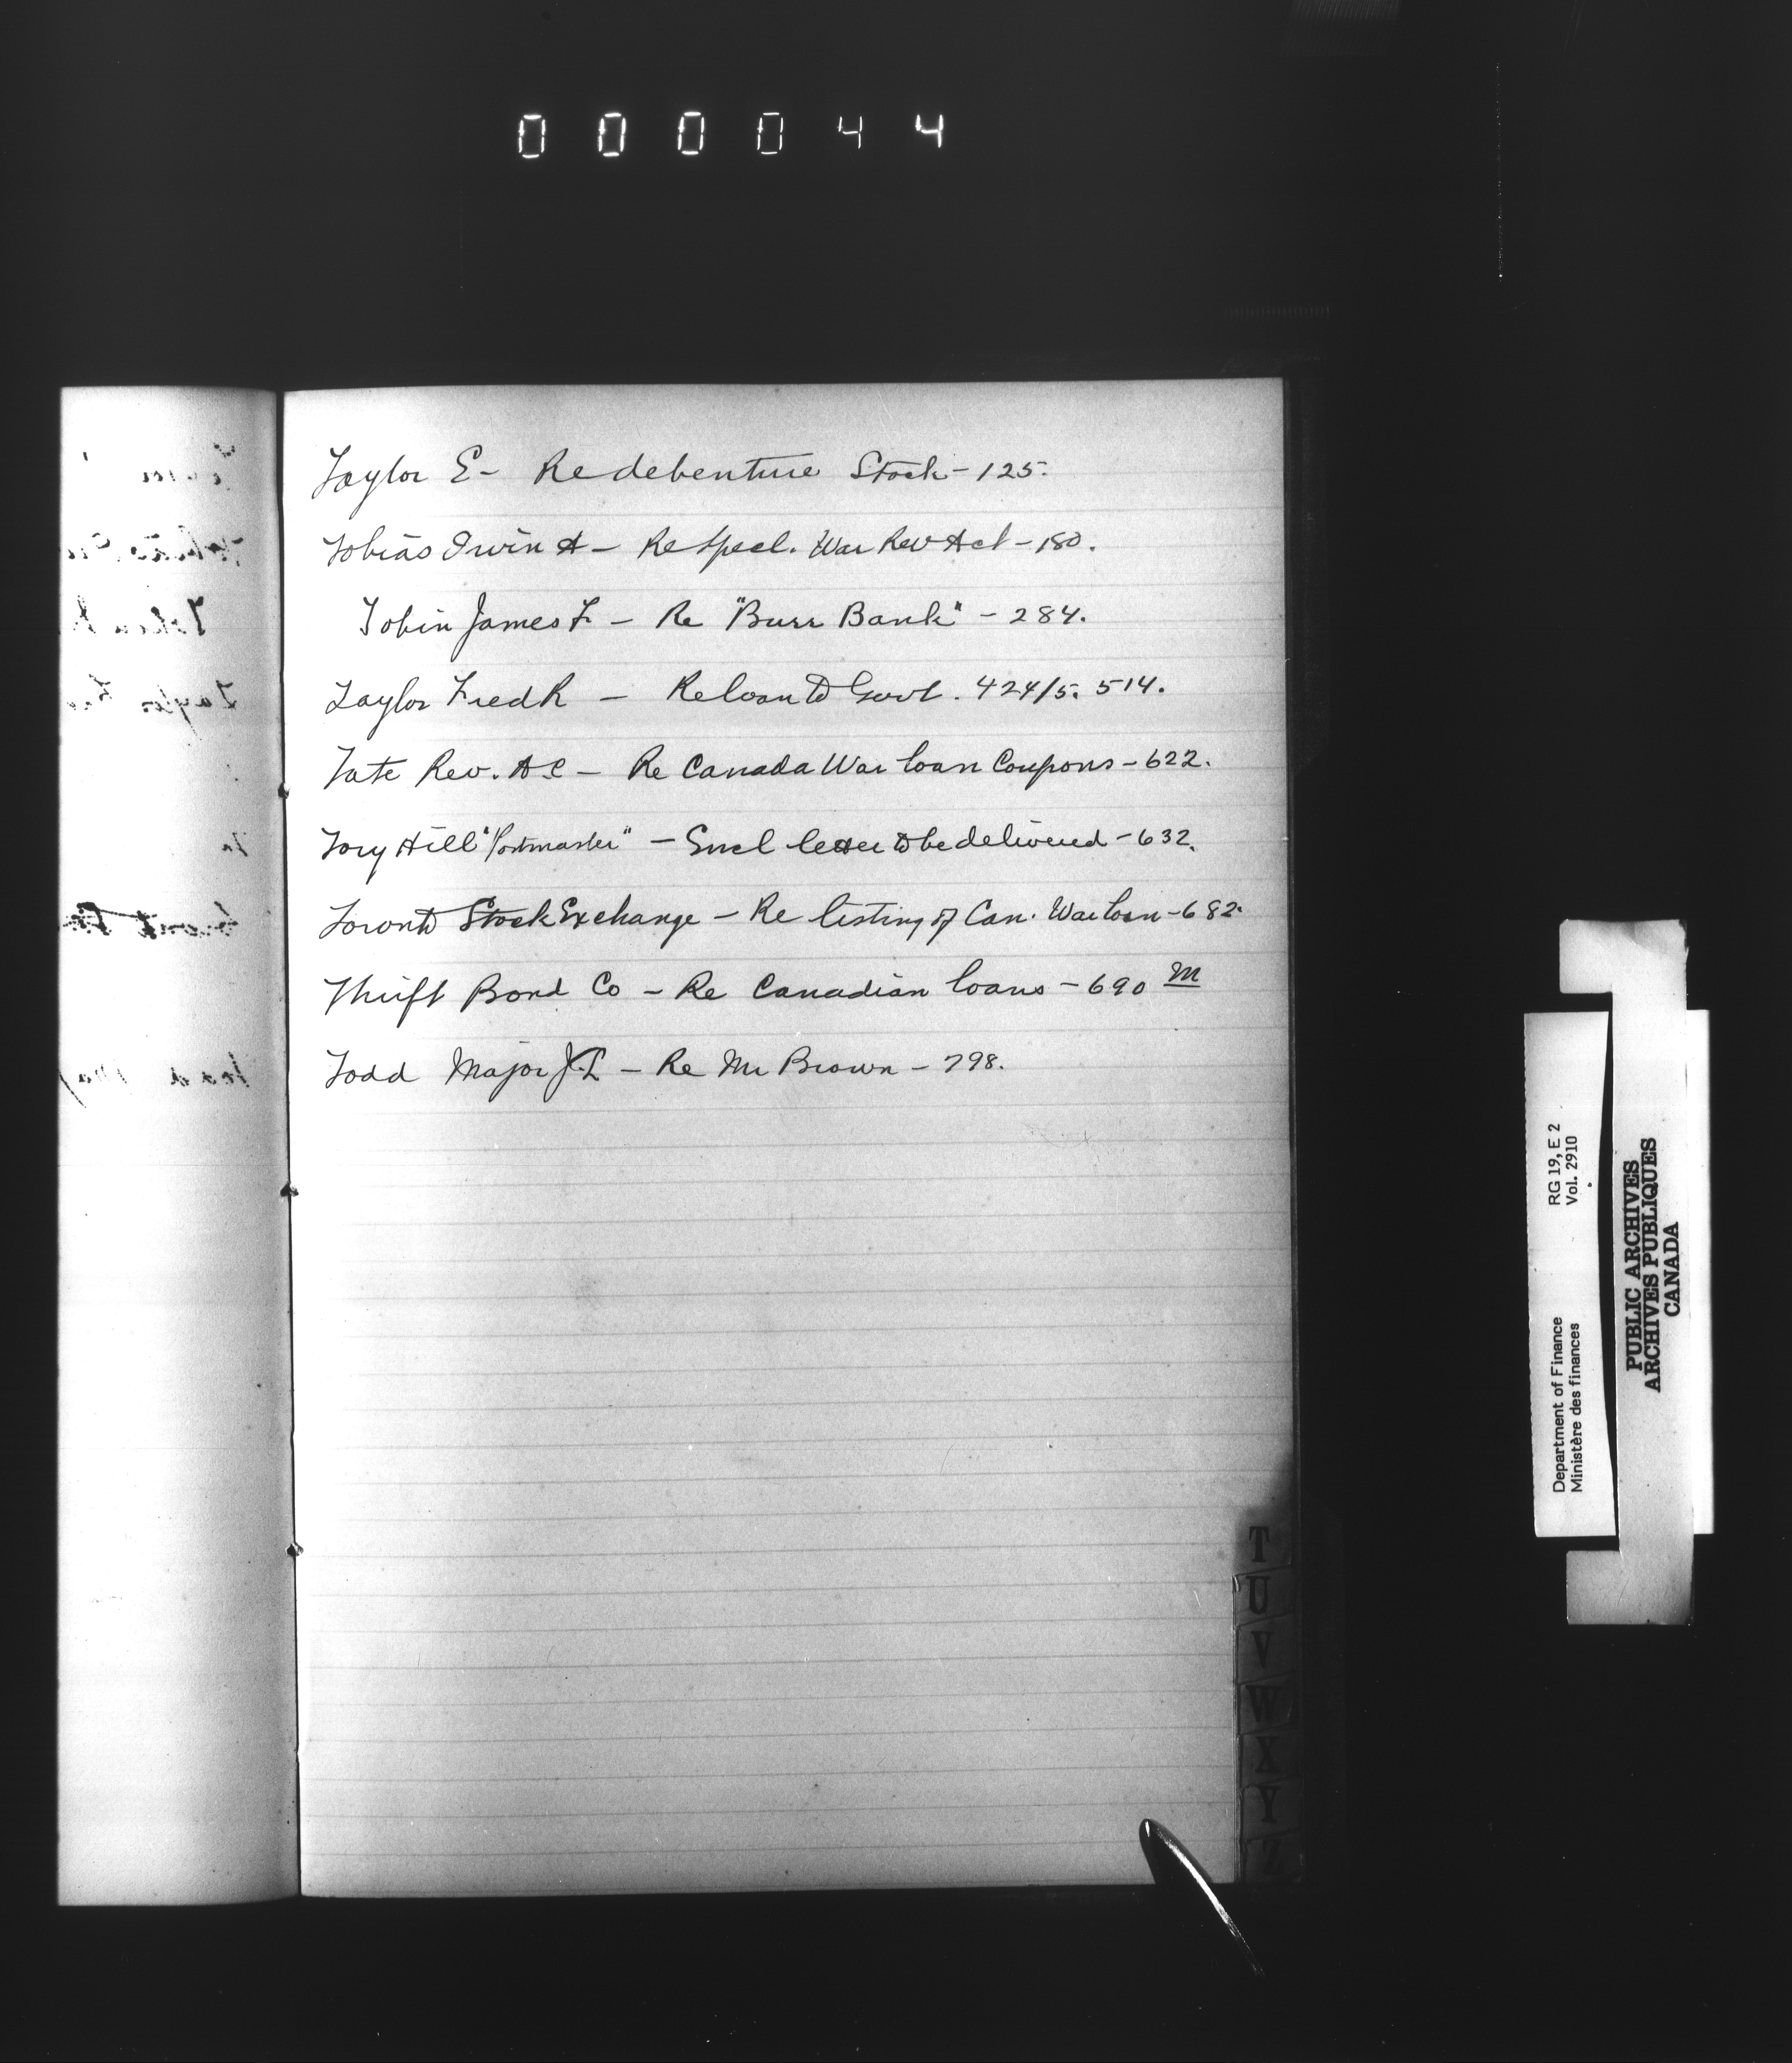 000044
Taylor E - Re debenture Stock - 125.
Tobias Irwin A - Re Specl. War Rev Act - 180.
Tobin James F - Re "Burr Bank" - 284.
Taylor Fred R - Re loan to Govt. 424/5. 514.
Tate Rev. A C - Re Canada War loan Coupons - 622.
Tory Hill "Postmaster" - Encl letter to be delivered - 632.
Toronto Stock Exchange - Re listing of Can. War loan - 682.
Thrift Bond Co - Re Canadian loans - 690 M
Todd Major J L - Re Mr Brown - 798.
T
U
V
W
X
Y
Z
Department of Finance RG 19, E 2
Ministère des finances Vol. 2910
PUBLIC ARCHIVES
ARCHIVES PUBLIQUES
CANADA